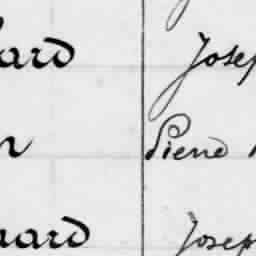 ard Josep
n Piene
aard Josep